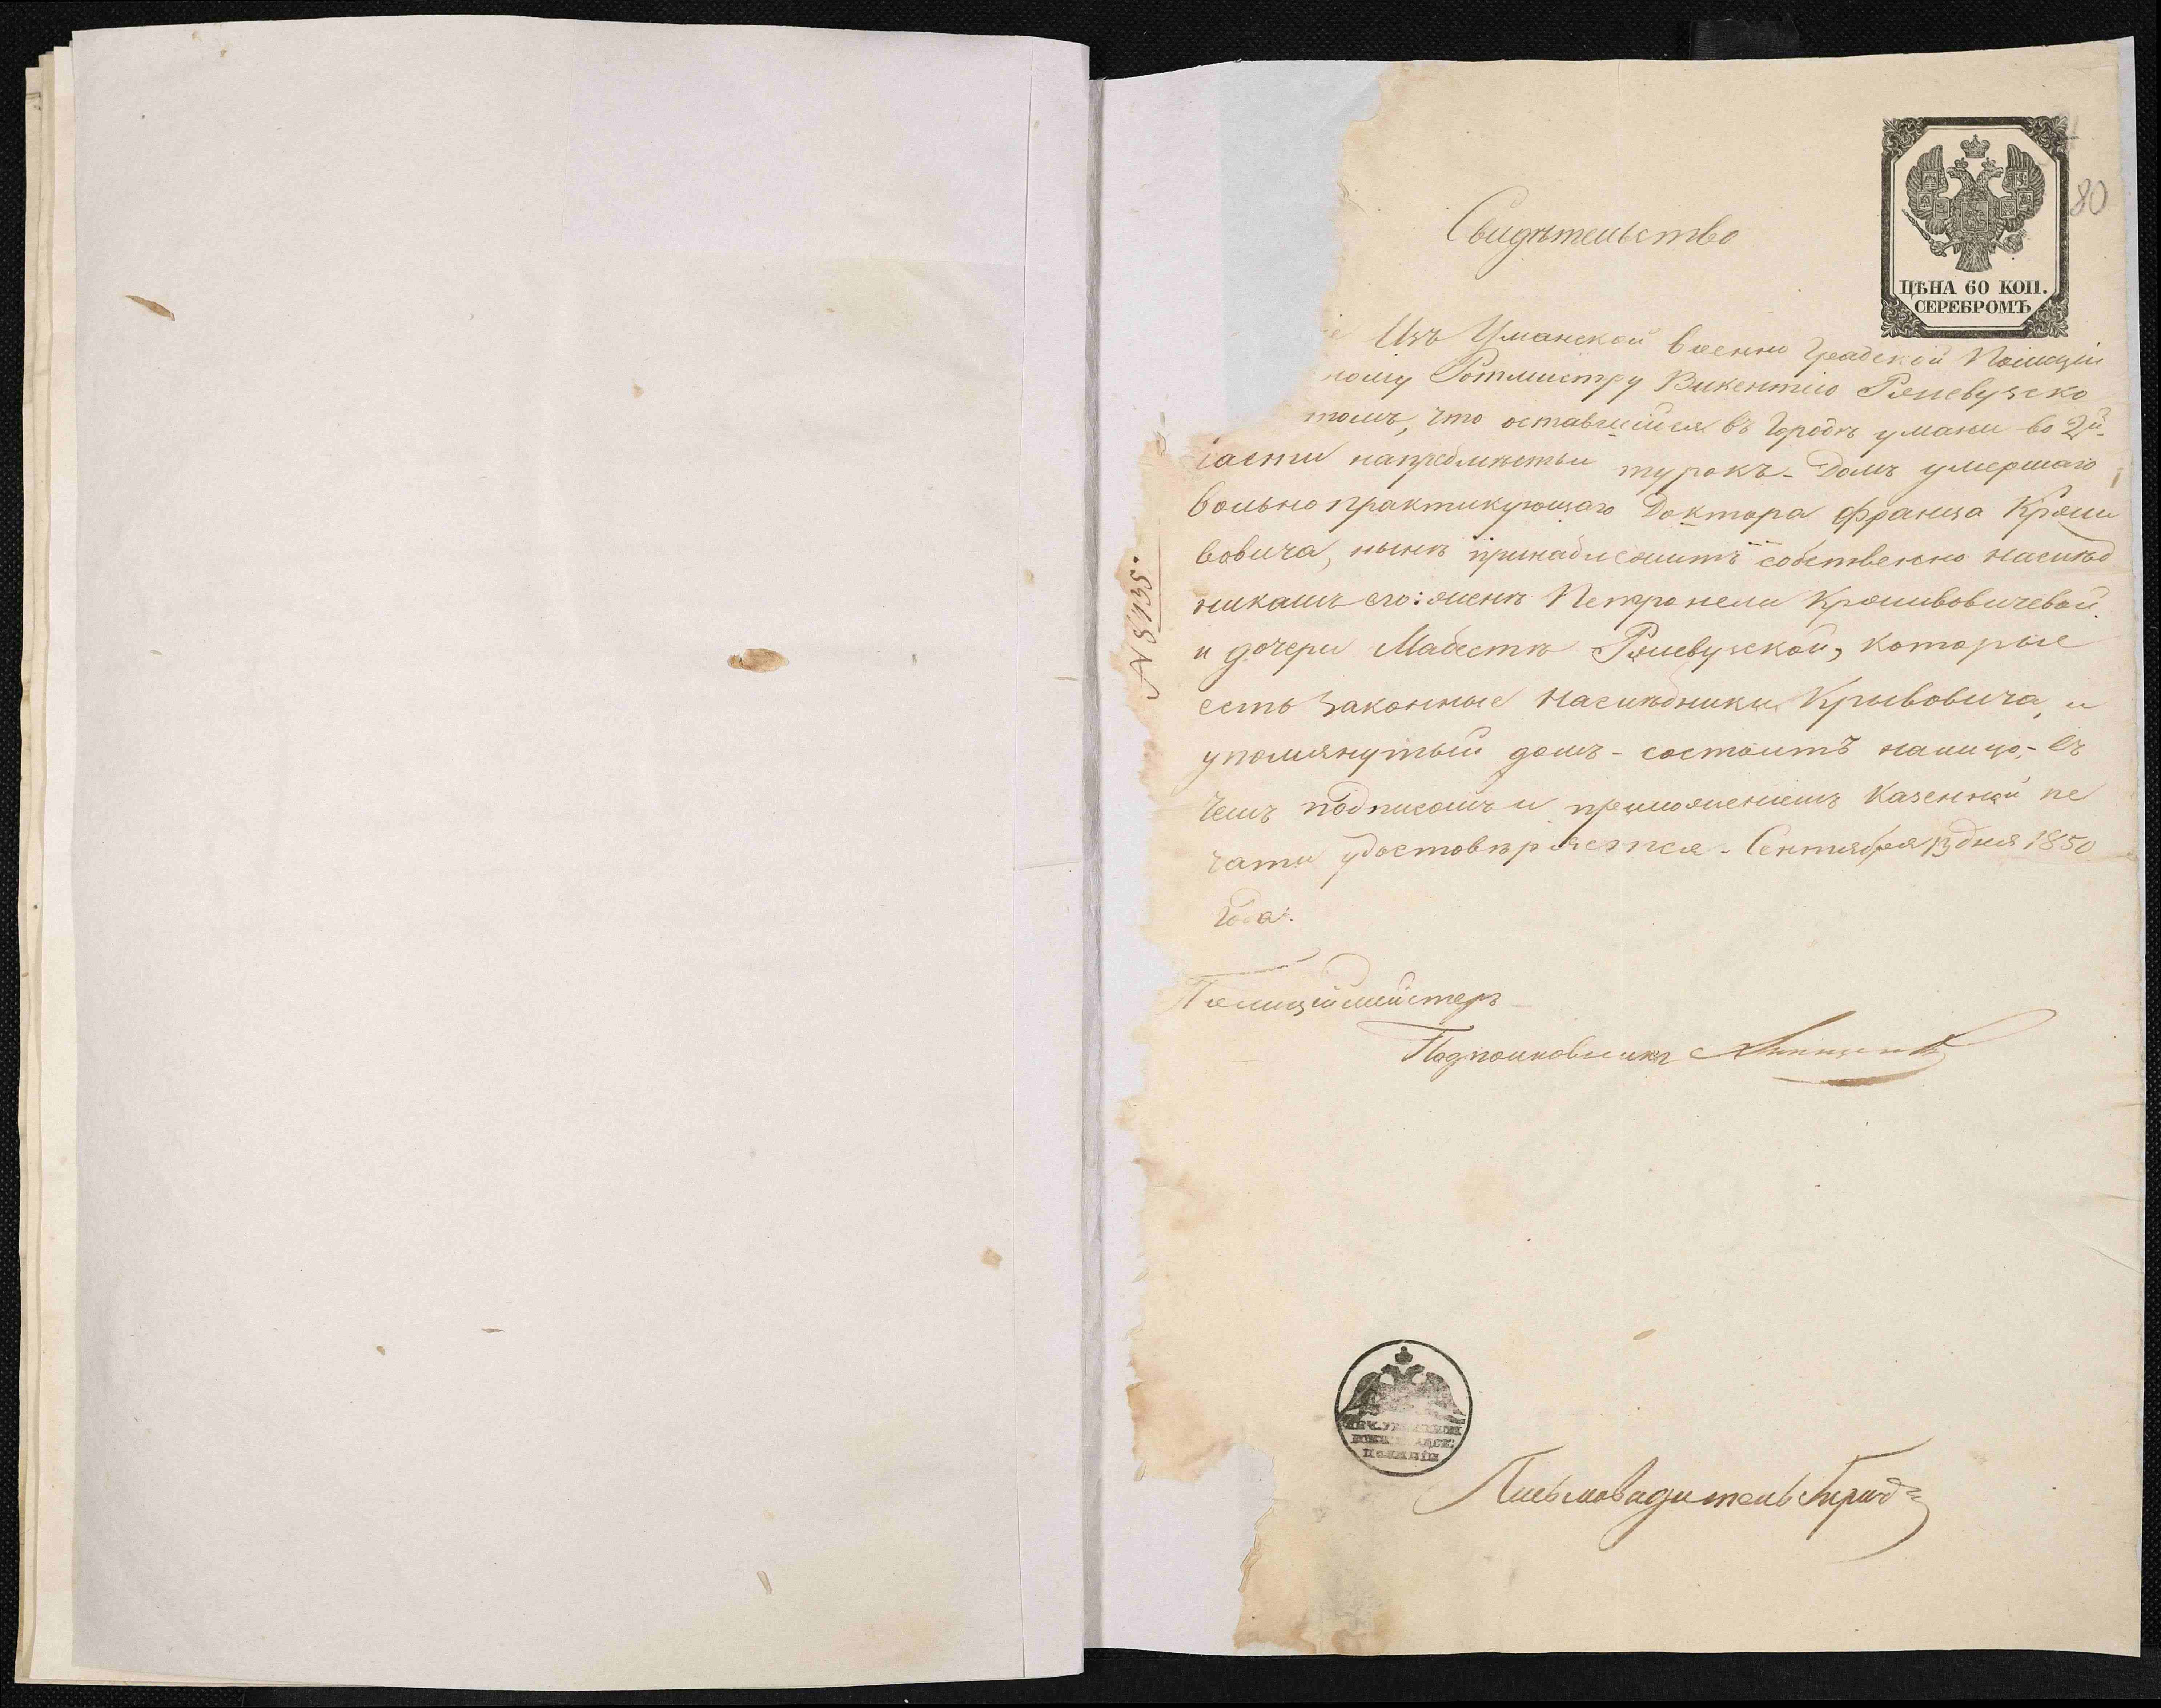 80
ЦѢНА 60 КОП.
СЕРЕБРОМЪ
Свидѣтельство
Изъ Уманской Военно Градской Полиціи
ному Ротмистру Викентію
томъ, что оставшійся въ Городѣ умани во 2й
части напредмѣстьи турокъ - Домъ умершаго
вольно практикующаго Доктора Франца
вовича, нынѣ принадлежитъ собственно наслѣд
никамъ его: женѣ Петронели
и дочери которые
есть законные наслѣдники Кривовича, и
упомянутый домъ - состоитъ налицо, - въ
чемъ подписомъ и приложеніемъ Казенной пе
чати удостовѣряется - Сентября 13 дня 1850
Года.
Полиціймейстеръ
Подполковникъ
№ 5135.
ПОЛИЦІИ
Письмоводитель